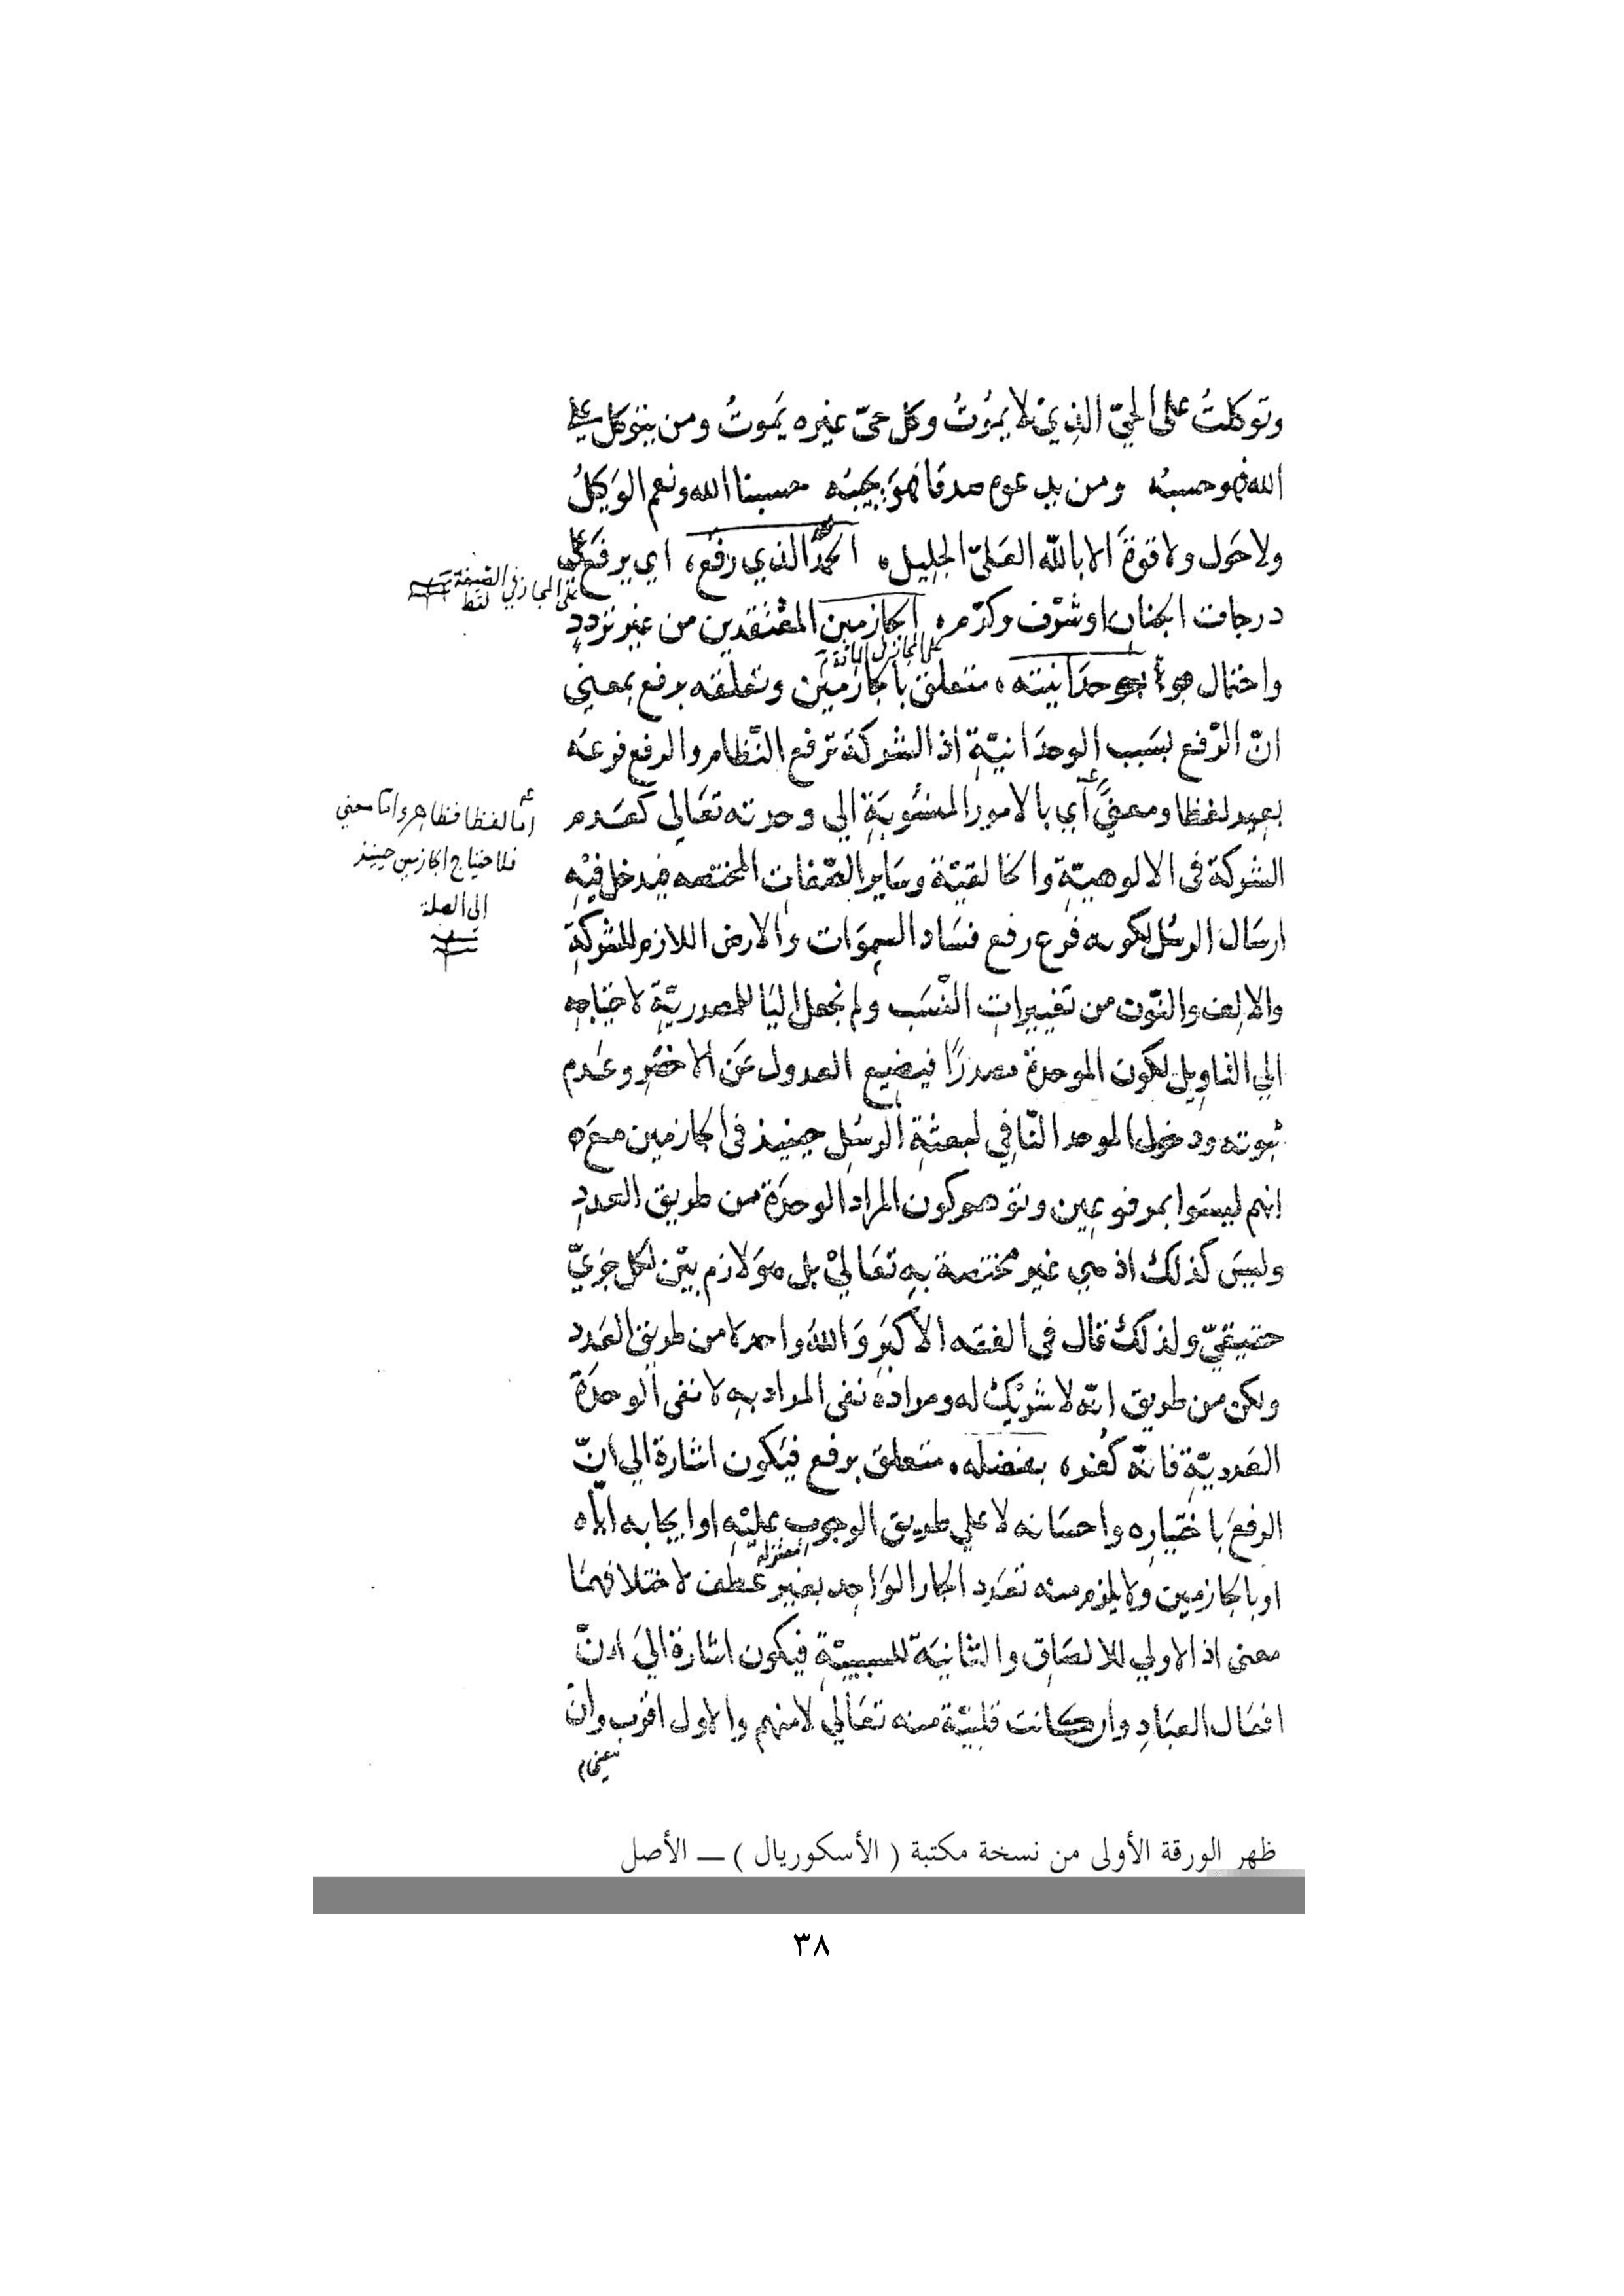 وتوكلتُ على الحيّ الذي لا يموتُ وكل حيّ غيره يَموتُ ومن يتوكل على
الله فهو حسبه ومن يدعوه صدقا فهو يجيبه حسبنا الله ونعم الوكيلُ
ولا حَول ولا قوةَ الا بالله العليّ الجليل الحمد لله الذي رفع، اي يرفع على
على المجاز في الصيغة
فقط
درجات الجنان او شرّف وكرّم الجازمين المعتقدين من غير تردد
على المجاز في المادة
واحتمال بوحدانيته، متعلق بالجازمين وتعلقه برفع بمعنى
انّ الرّفع بسَبب الوحدَانيّة اذ الشركة ترفع النّظام والرفع فرعه
بعيد لفظا ومعنىً أي بالامور المنسُوبَة الى وحدته تعَالى كعَدم
أما لفظا فظاهر واما معنى
فلاحتياج الجازمين حينئذ
إلى الصلة
الشركة في الالوهيّة والخالقيّة وسَاير الصّفات المختصه فيدخل فيْه
ارسَال الرسُل لكونه فرع رفع فسَاد السموَات والارض اللازم للشركة
والالف والنّون من تغييرات النّسَب ولم نجعل اليَا للمصدريَّة لاحتياجه
الى التاويل لكون الموحدة مصدرًا فيضيع العدول عَن الاخصَر وعَدم
ثبوته ودخول الموحد النّافي لبعثة الرسُل حينيذ في الجازمين مع
انهم ليسَوا بمرفوعين وتوهم كون المراد الوحدَة من طريق العدد
وليسَ كذلك اذ هي غير مختصة به تعَالىْ بل هو لازم بيّن لكل جزيّ
حقيقيّ ولذلك قال في الفقه الاكبَر وَالله واحد لا من طريق العَدد
ولكن من طريق انّه لا شريْك له ومراده نفى المراد به لا نفى الوحدَة
العَدديّة فانّه كُفر، بفضله، متعلق برفع فيَكون اشارة الى انّ
الرفعَ باختيَاره واحسَانه لا على طريق الوجوب عليْه او ايجابه ايّاه
المعتزلة
او بالجازمين ولا يلزم منه تعَدد الجار الوَاحِد بغير عَطف لاختلافهمَا
معنى اذ الاولي للالصَاق والثانيَة للسببيّة فيكون اشارة الىَ انّ
افعَال العبَاد وان كانت قلبيّة منه تعَالى لا منهم والاول اقرب وان
ظهر الورقة الأولى من نسخة مكتبة ( الأسكوريال ) ــ الأصل
٣٨